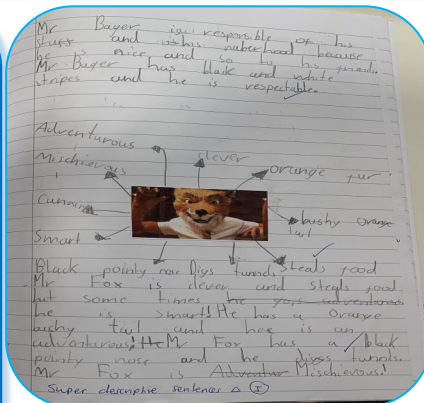 Mr Bager is responsible of his
stuff and his naberhood because
he is nice and so to his friend.
Mr. Bager has black and white
stripes and he is respectable.
Adventurous
Mischievous
clever
orange fur
Cunning
bushy orange
tail
Smart
Black pointy nose Diys tunnels Steals food
Mr Fox is clever and steals food
but some times he
he is smart! He has a Orange
buchy tail and hee is an
adventurous! He Mr Fox has a black
pointy nose and he digs tunnls.
Mr Fox is Adventur Mischievous!
Super descriptive sentences △ I